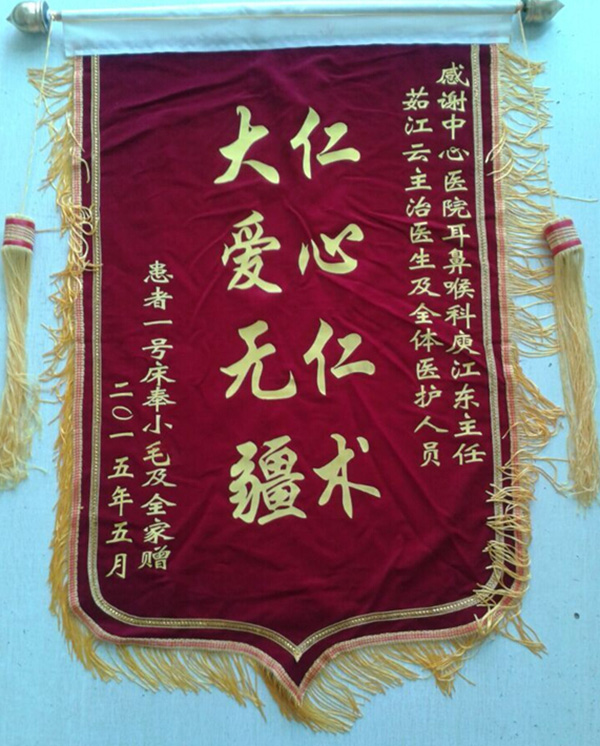 感谢中心医院耳鼻喉科庾江东主任
茹江云主治医生及全体医护人员
仁心仁术
大爱无疆
患者一号床奉小毛及全家赠
二〇一五年五月